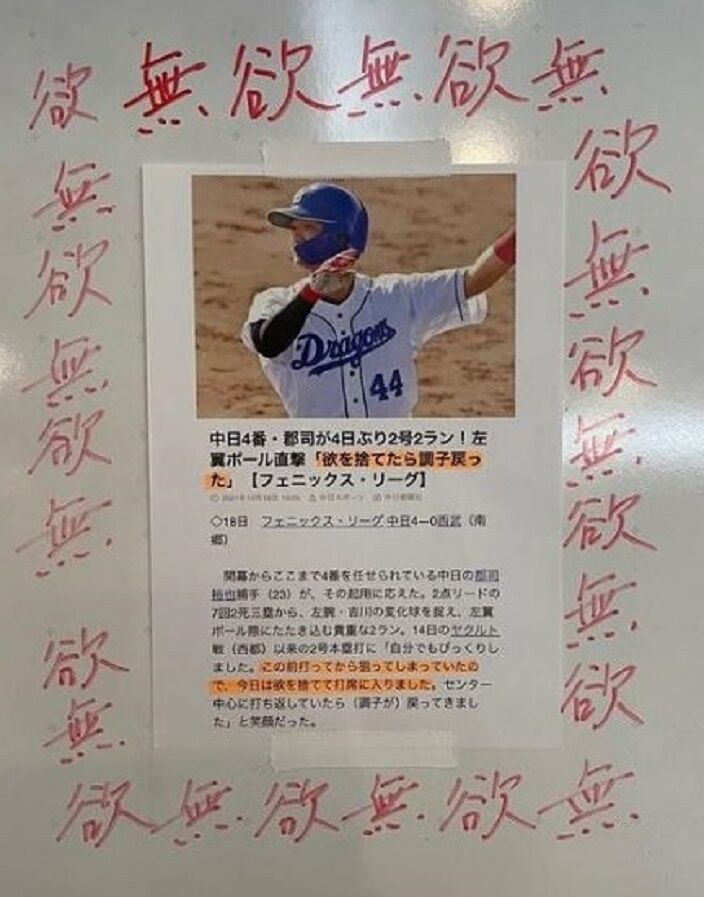 欲無欲無欲無
無
欲
無
欲
無
欲
無
Dragons
44
中日4番・郡司が4日ぶり2号2ラン!左
翼ポール直撃「欲を捨てたら調子戻っ
た」【フェニックス・リーグ】
2021年10月18日 中日スポーツ 中日新聞社
◇18日 フェニックス・リーグ 中日4―0西武(南
郷)
開幕からここまで4番を任せられている中日の郡司
裕也捕手(23)が、その起用に応えた。2点リードの
7回2死三塁から、左腕・吉川の変化球を捉え、左翼
ポール際にたたき込む貴重な2ラン。14日のヤクルト
戦(西都)以来の2号本塁打に「自分でもびっくりし
ました。この前打ってから狙ってしまっていたの
で、今日は欲を捨てて打席に入りました。センター
中心に打ち返していたら(調子が)戻ってきまし
た」と笑顔だった。
欲
無
欲
無
欲
無
欲
欲無欲無欲無